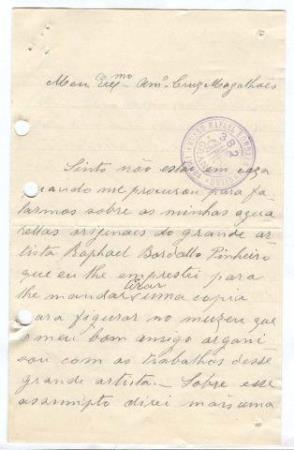 Meu Exmo Amo Cruz Magalhães
382
Sinto não estar em caza
quando me procurou para fa-
larmos sobre as minhas agua
rellas originaes do grande ar
tista Raphael Bordallo Pinheiro
que eu lhe emprestei para
tirar
lhe mandar uma copia
para figurar no muzeu que
o meu bom amigo organi
sou com os trabalhos desse
grande artista. – Sobre esse
assumpto direi mais uma